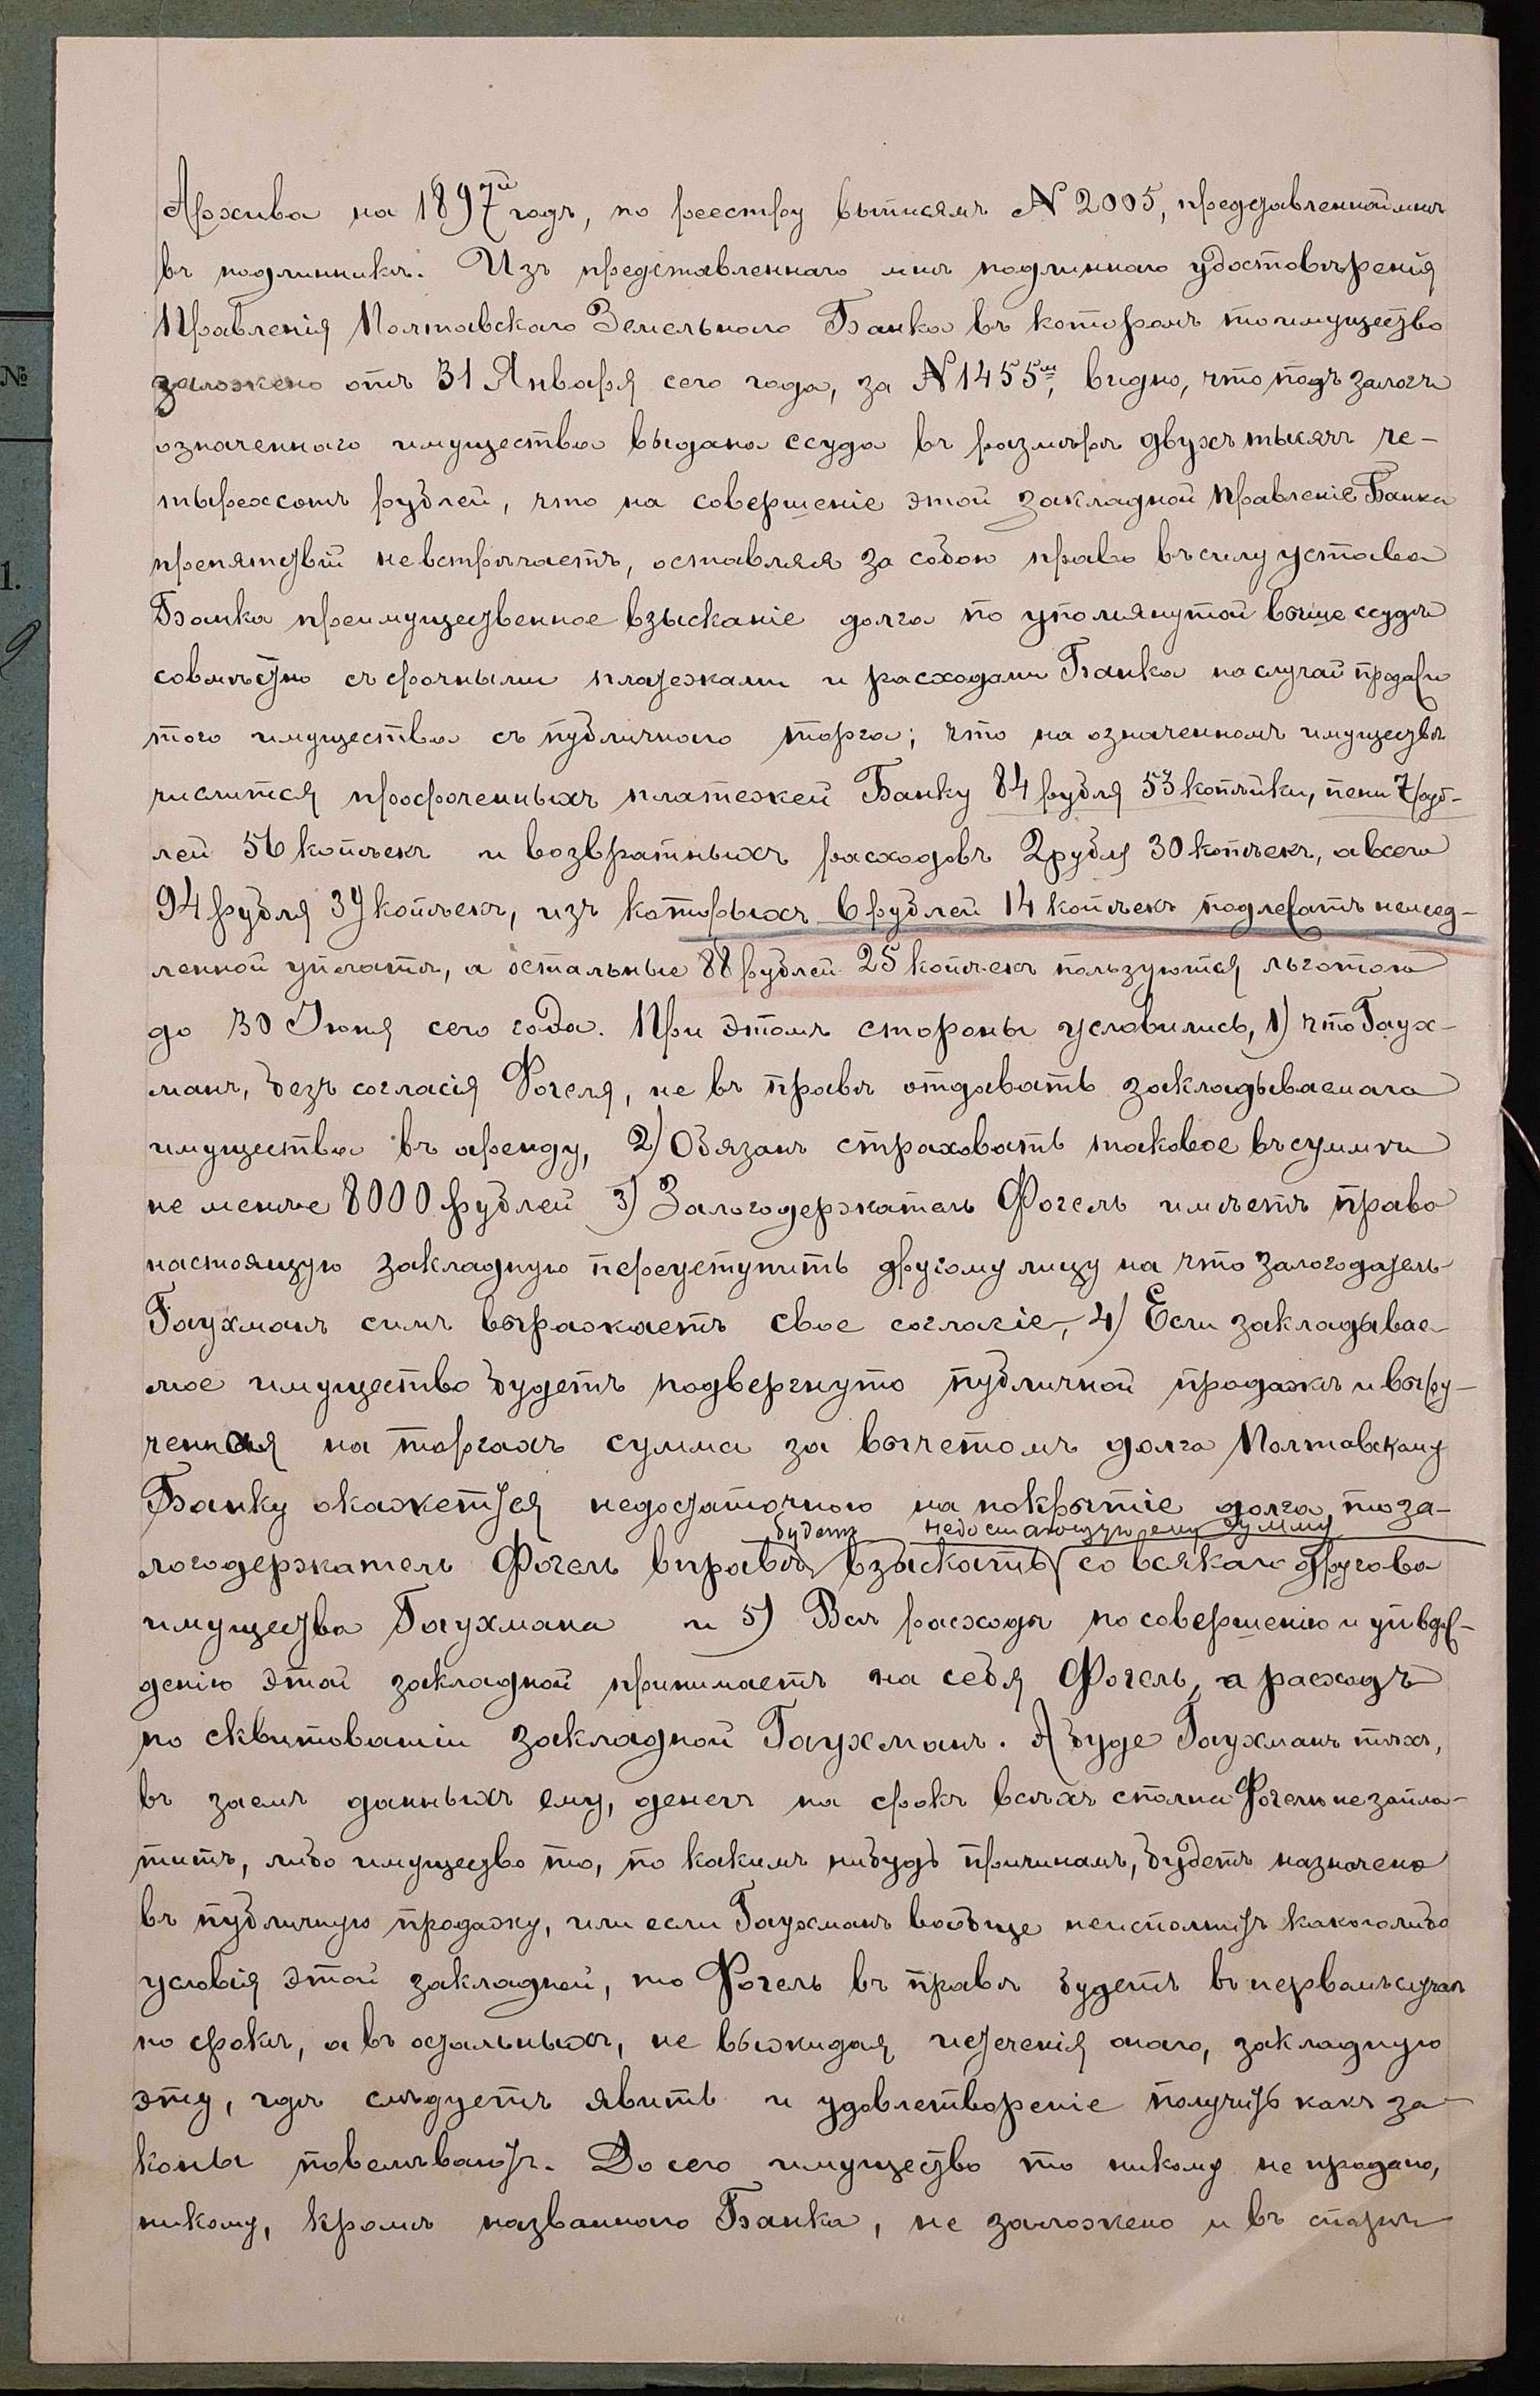 Архива на 1897й годъ, по реестру выписямъ № 2005, представленной мнѣ
въ подлинникѣ. Изъ представленнаго мнѣ подлиннаго удостовѣренія
Правленія Полтавскаго Земельнаго Банка въ которомъ то имущество
№ заложено отъ 31 Января сего года, за № 1455м, видно, что подъ залогъ
означеннаго имущества выдана ссуда въ размѣрѣ двухъ тысячъ че-
тырехсотъ рублей, что на совершеніе этой закладной Правленіе Банка
препятствій не встрѣчаетъ, оставляя за собою право въ силу устава
1.
Банка преимущественное взысканіе долга по упомянутой выше ссудѣ
совмѣстно съ срочными платежами и расходами Банка на случай продажи
того имущества съ публичнаго торга; что на означенномъ имуществѣ
числится просроченныхъ платежей Банку 84 рубля 53 копѣйки, пени 7 руб-
лей 56 копѣекъ и возвратныхъ расходовъ 2 рубля 30 копѣекъ, а всего
94 рубля 39 копѣекъ, изъ которыхъ 6 рублей 14 копѣекъ подлежатъ немед-
ленной уплатѣ, а остальные 88 рублей 25 копѣекъ пользуются льготою
до 30 Іюня сего года. При этомъ стороны условились, 1) что Гаух-
манъ, безъ согласія Фогеля, не въ правѣ отдавать закладываемаго
имущества въ аренду, 2) Обязанъ страховать таковое въ суммѣ
не менѣе 8000 рублей 3) Залогодержатель Фогель имѣетъ право
настоящую закладную переуступить другому лицу на что залогодатель
Гаухманъ симъ выражаетъ свое согласіе, 4) Если закладывае-
мое имущество будетъ подвергнуто публичной продажѣ и выру-
ченная на торгахъ сумма за вычетомъ долга Полтавскому
Банку окажется недостаточною на покрытіе долга, то за-
будетъ недостающую ему сумму
логодержатель Фогель вправѣ взыскать со всякаго другова
имущества Гаухмана и 5) Всѣ расходы по совершенію и утвер-
денію этой закладной принимаетъ на себя Фогель, а расходъ
по сквитованіи закладной Гаухманъ. А буде Гаухманъ тѣхъ,
въ заемъ данныхъ ему, денегъ на срокъ всѣхъ сполна Фогелю не запла-
титъ, либо имущество то, по какимъ нибудь причинамъ, будетъ назначено
въ публичную продажу, или если Гаухманъ вообще неисполнитъ какоголибо
условія этой закладной, то Фогель въ правѣ будетъ въ первомъ случаѣ
по срокѣ, а въ остальныхъ, не выжидая истеченія онаго, закладную
эту, гдѣ слѣдуетъ явить и удовлетвореніе получить какъ за-
коны повелѣваютъ. До сего имущество то никому не продано,
никому, кромѣ названнаго Банка, не заложено и въ спорѣ